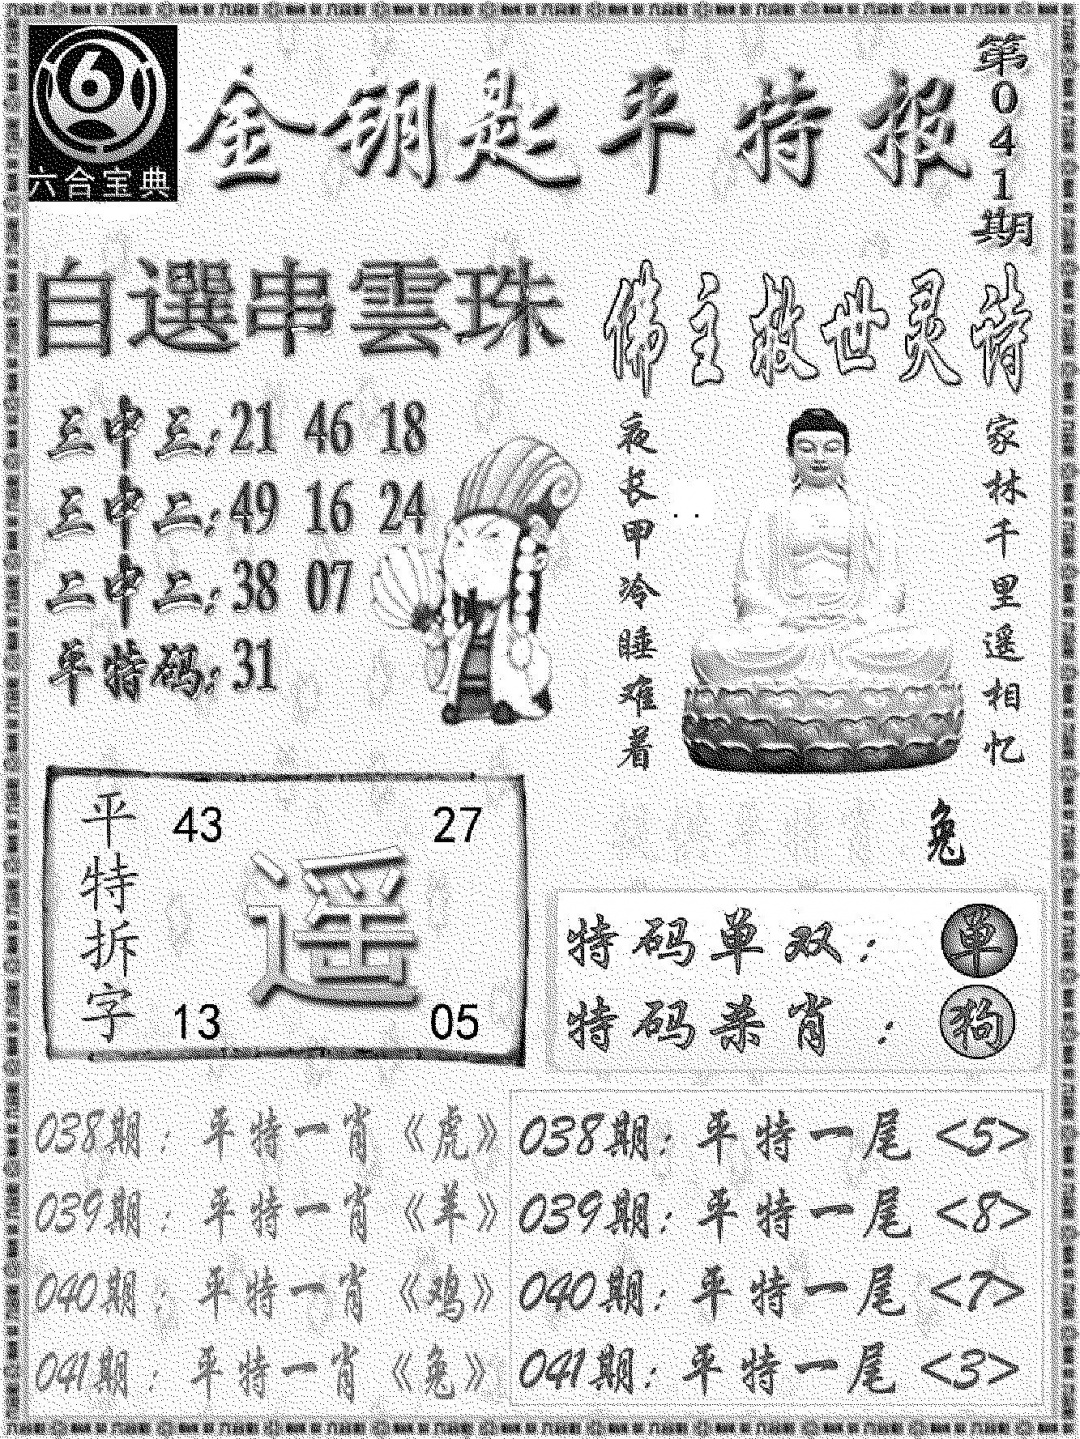 六合宝典
金钥匙平特报
第041期
自選串雲珠
三中三:21 46 18
三中二:49 16 24
二中二:38 07
平特码:31
佛主救世灵诗
家林千里遥相忆
夜长甲冷睡难着
兔
平特拆字
43 27
遥
13 05
特码单双：单
特码杀肖：狗
038期：平特一肖《虎》
039期：平特一肖《羊》
040期：平特一肖《鸡》
041期：平特一肖《兔》
038期：平特一尾<5>
039期：平特一尾<8>
040期：平特一尾<7>
041期：平特一尾<3>